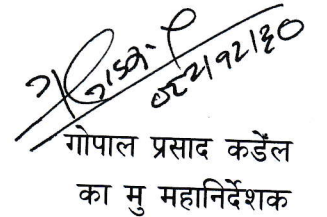 ०८२/१२/३०
गोपाल प्रसाद कडेँल
का मु महानिर्देशक